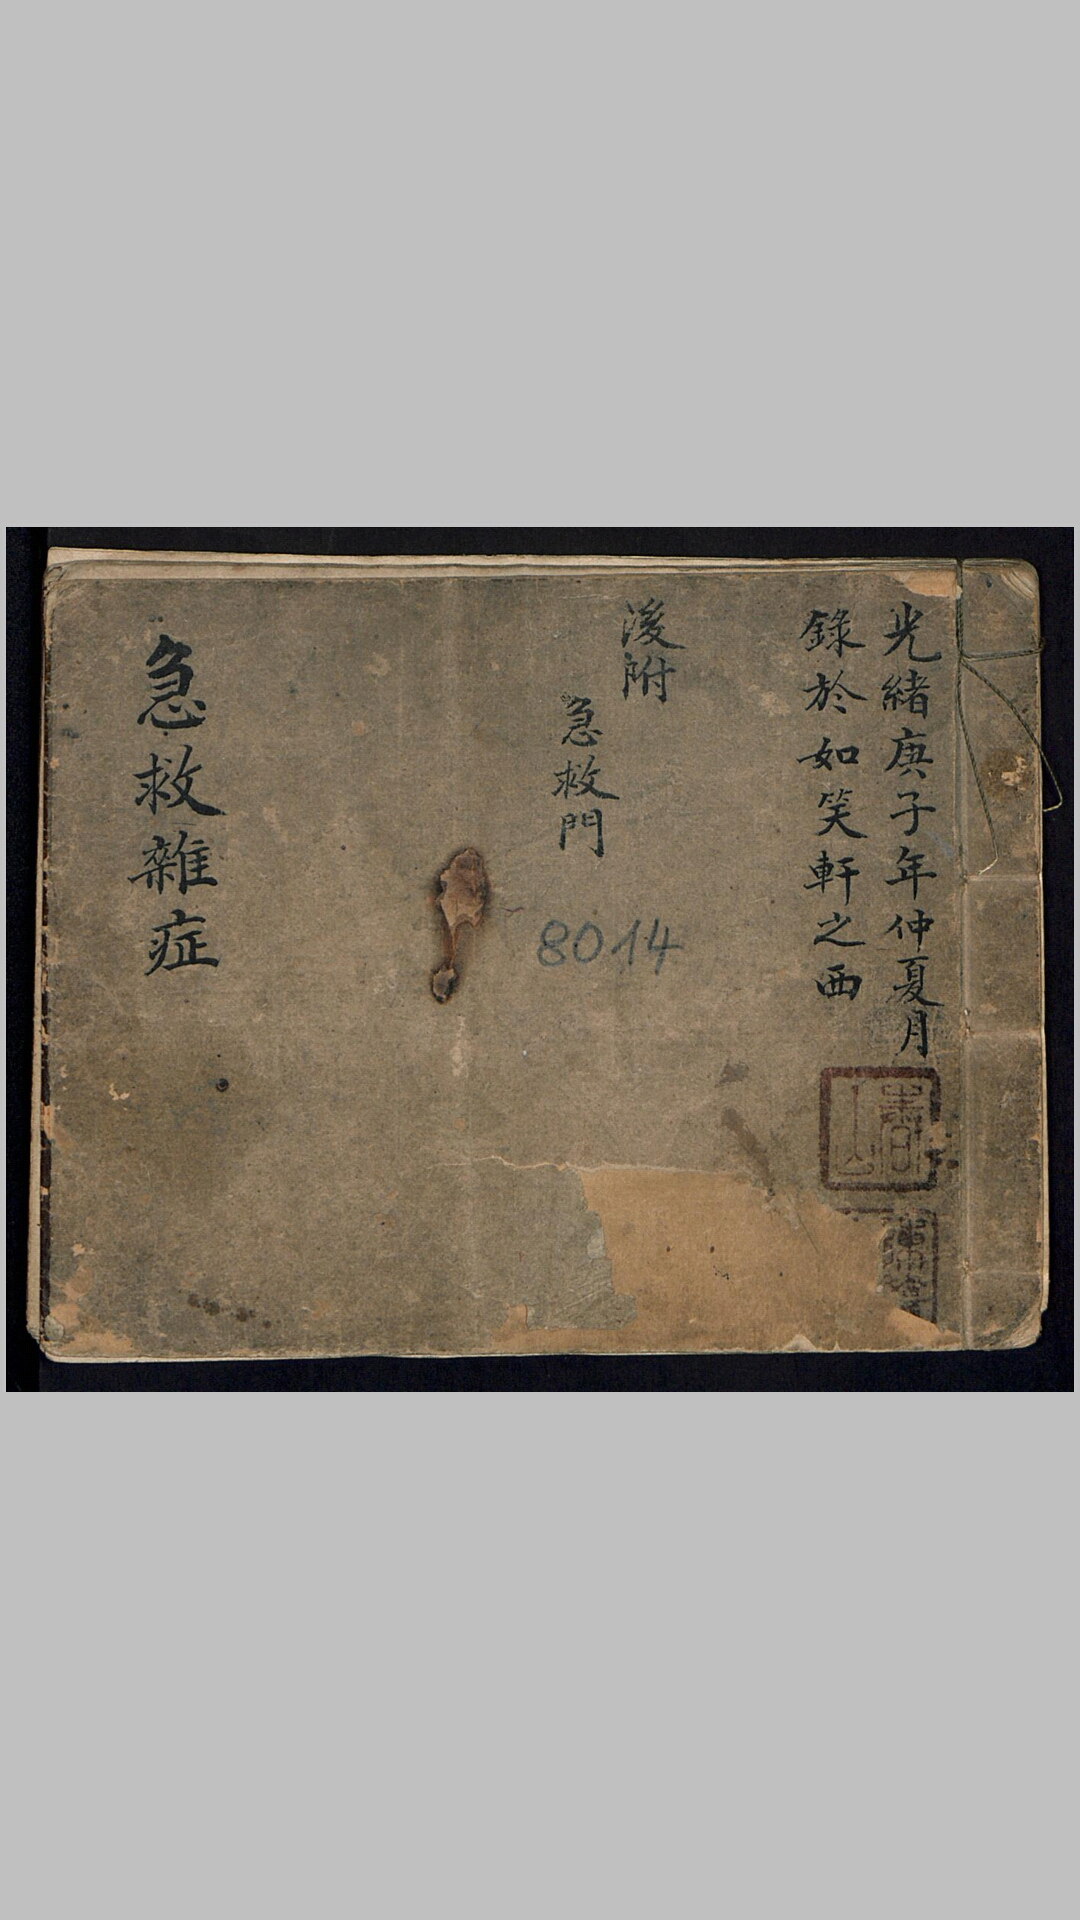 光緒庚子年仲夏月
錄於如笑軒之西
後附
急救門
8014
急救雜症